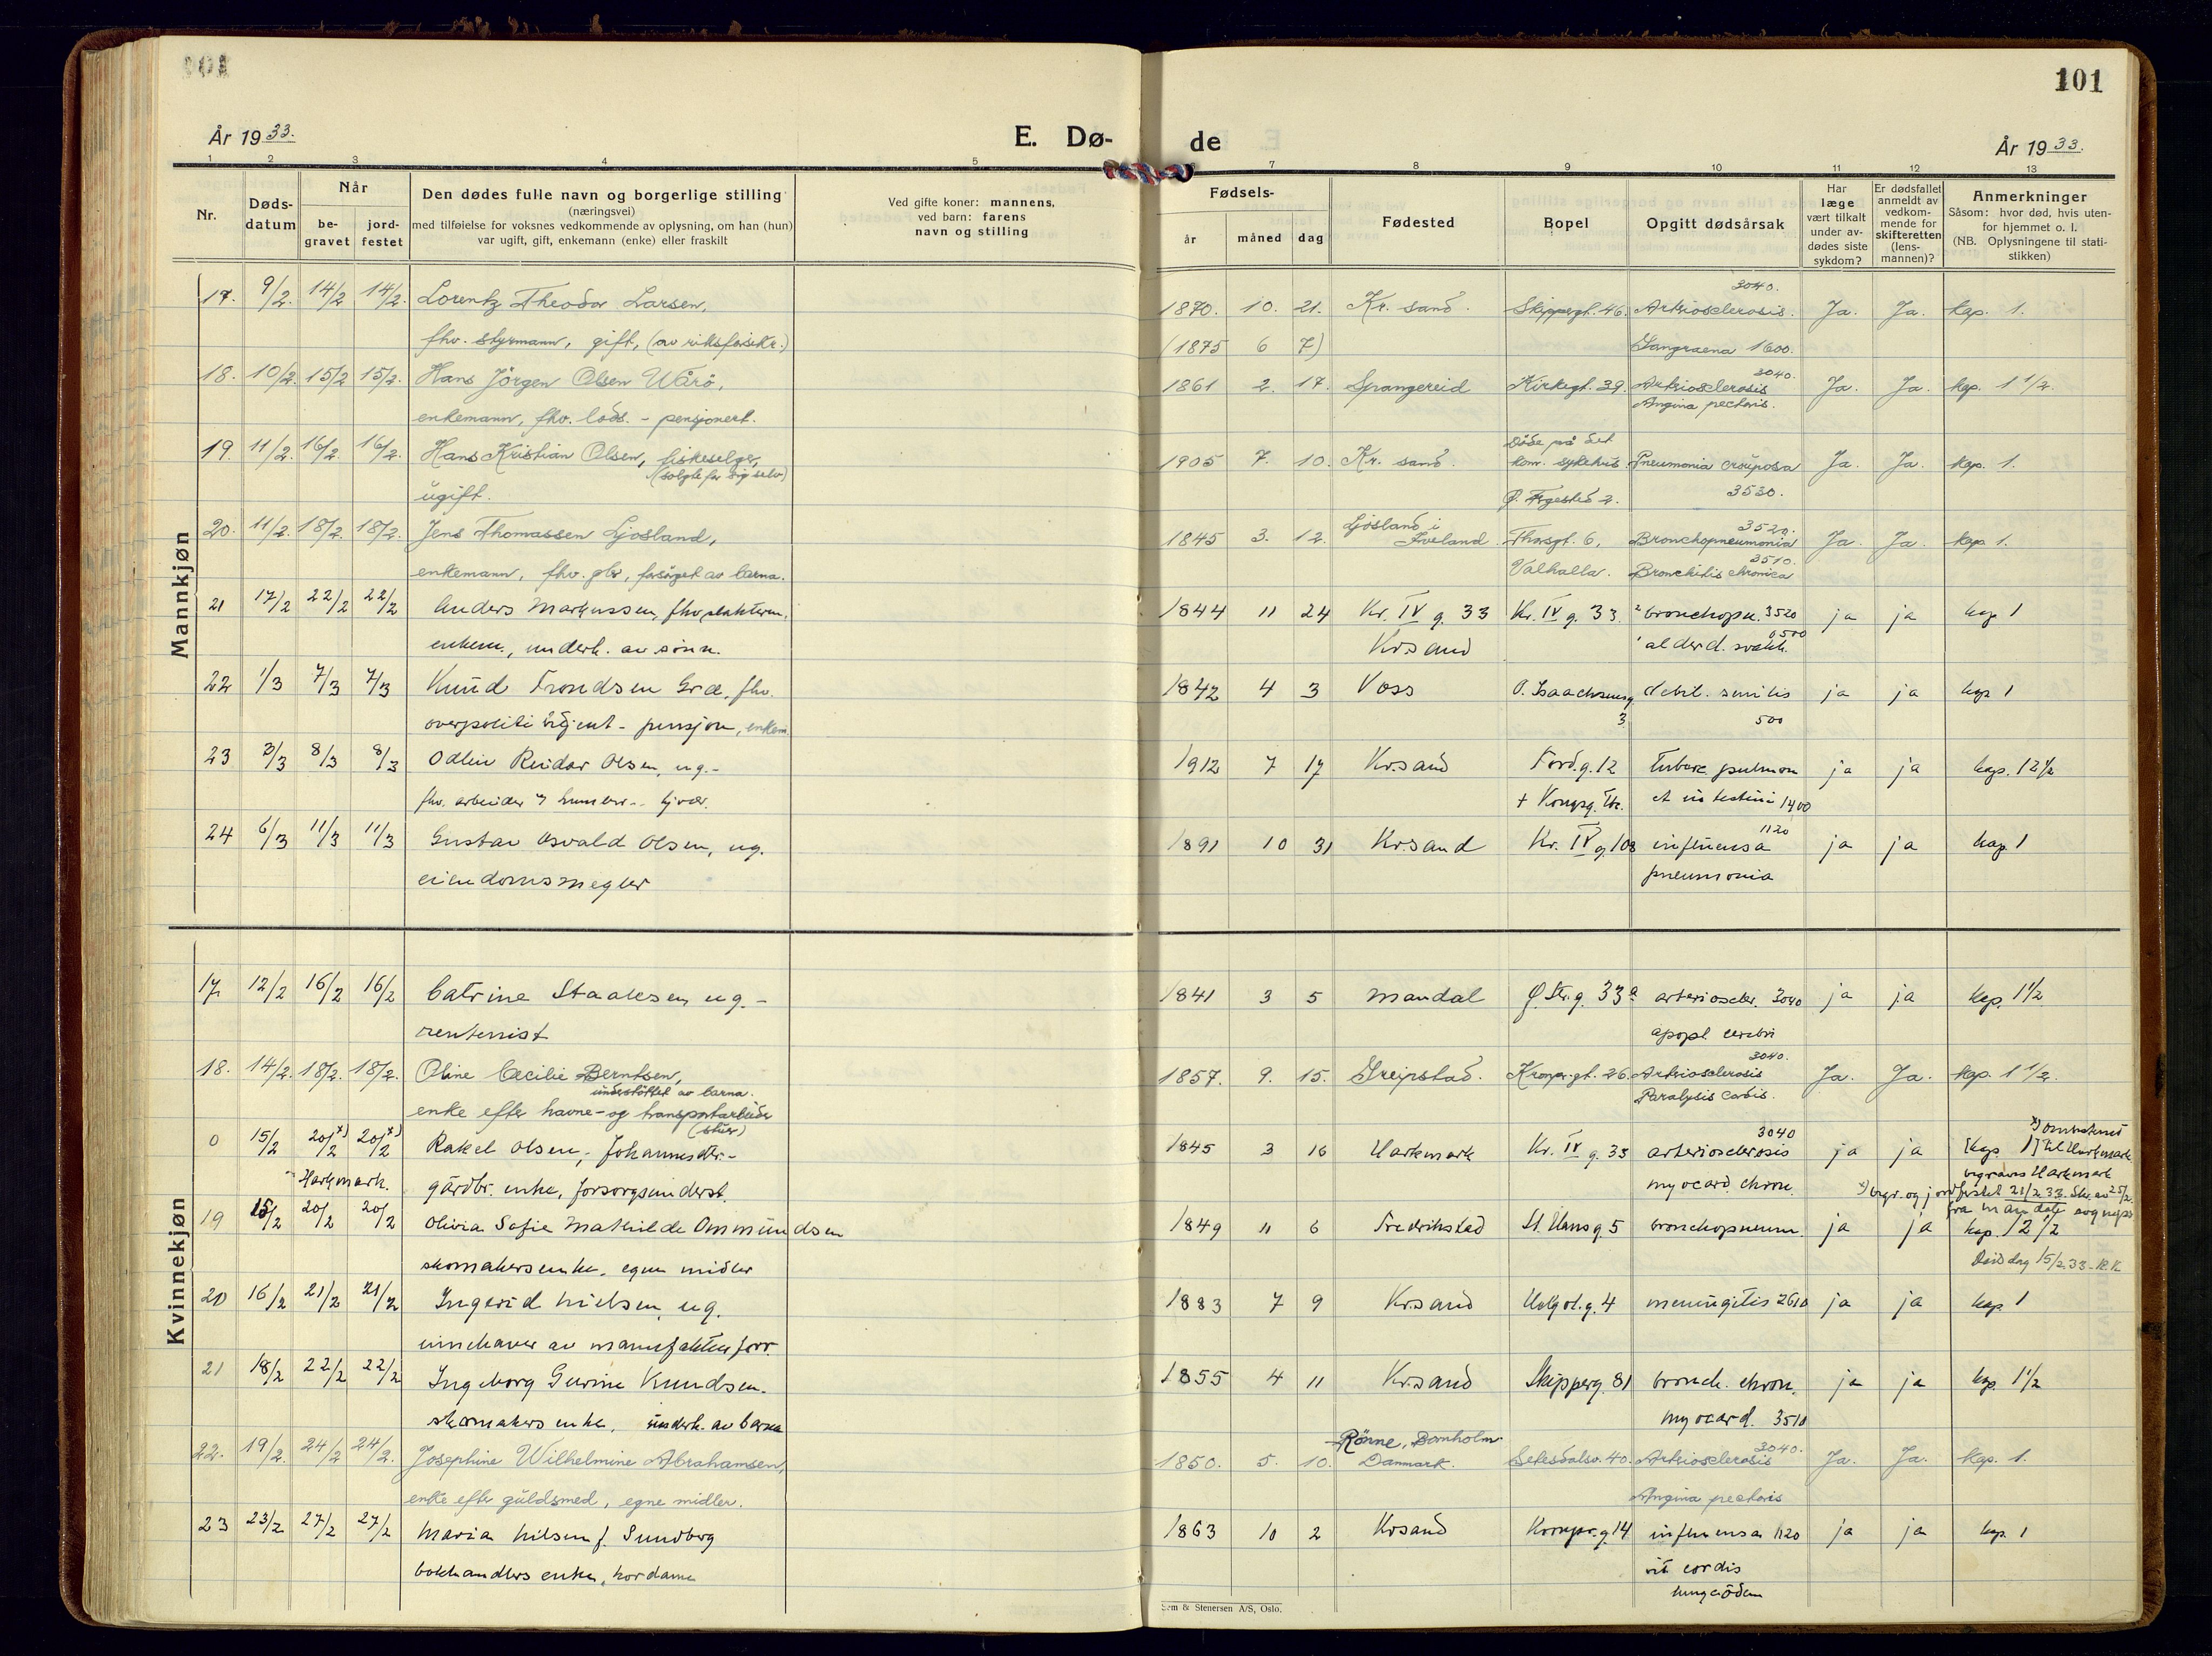 101
År 1933.
E. Dø-
1 2 3 4 5
Nr.
Døds-
datum
Når
be-
gravet
jord-
festet
Den dødes fulle navn og borgerlige stilling
(næringsvei)
med tilføielse for voksnes vedkommende av oplysning, om han (hun)
var ugift, gift, enkemann (enke) eller fraskilt
Ved gifte koner: mannens,
ved barn: farens
navn og stilling
Mannkjøn
17. 9/2. 14/2 14/2. Lorentz Theodor Larsen,
fhv. styrmann, gift,
18. 10/2. 15/2 15/2. Hans Jörgen Olsen Wårö,
enkemann, fhv. lods. - pensjonert.
19. 11/2. 16/2. 16/2. Hans Kristian Olsen, fiskeselger,
(solgte for sig selv)
ugift.
20. 11/2. 18/2. 18/2. Jens Thomassen Ljosland,
enkemann, fhv. gbr, forsörget av barna.
21 17/2 22/2 22/2 Anders Markussen,
enkem., underh. av sönn.
22 1/3 7/3 7/3 Knud Trondsen Græ, fhv.
overpoliti - pensjon, enkem.
23 3/3 8/3 8/3 Odlin Reidar Olsen, ug.-
fhv. arbeider
24 6/3 11/3 11/3 Gustav Osvald Olsen, ug.
eiendomsmegler
Kvinnekjøn
17 12/2 16/2 16/2 Catrine Staalesen ug. -
rentenist
18. 14/2. 18/2. 18/2. Oline Cecilie Berntsen,
understöttet av barna.
enke efter havne- og transportarbeider
0 15/2 20/2 x) 20/2 x) Rakel Olsen, Johannesdtr.-
Harkmark. gårdbr. enke, forsorgsunderst.
19 15/2 20/2 20/2 Olivia Sofie Mathilde Ommundsen
skomakersenke, egne midler
20 16/2 21/2 21/2 Ingerid Nielsen, ug.
innehaver av manufakturforr.
21 18/2 22/2 22/2 Ingeborg Gurine Knudsen.
skomakers enke, underh. av barna
22. 19/2. 24/2 24/2. Josephine Wilhelmine Abrahamsen,
enke efter guldsmed, egne midler.
23 23/2 27/2 27/2 Maria Nilsen f. Sundberg
bokhandlers enke,
101
de
År 1933.
7 8 9 10 11 12 13
Fødsels-
år måned dag
Fødested
Bopel
Opgitt dødsårsak
Har
læge
vært tilkalt
under av-
dødes siste
sykdom?
Er dødsfallet
anmeldt av
vedkom-
mende for
skifteretten
(lens-
mannen)?
Anmerkninger
Såsom: hvor død, hvis uten-
for hjemmet o. l.
(NB. Oplysningene til stati-
stikken)
3040.
1870. 10. 21. Kr. sand. Skippergt. 46. Arteriosclerosis. Ja. Ja. Kap. 1.
(1875 6 7) 1600.
3040.
1861 2. 17. Spangereid Kirkegt. 39. Arteriosclerosis Ja. Ja. Kap. 1 1/2.
Angina pectoris.
Döde på det
1905 7. 10. Kr. sand. kom. sykehus. Pneumonia crouposa Ja. Ja. Kap. 1.
3530.
Ljösland i 3520.
1845 3. 12. Iveland. Thorsgt. 6, Bronchopneumonia Ja. Ja. Kap 1.
3510.
Valhalla. Bronchitis chronica
1844 11 24 Kr. IV g. 33 Kr. IV g. 33. bronchopn. 3520 ja ja kap 1
Kr.sand alderd. svakh.
1842 4 3 Voss O. Isaachsensg. debil. senilis ja ja kap 1
3 500
1912 7 17 Kr.sand Tord.g. 12 Tuberc. pulmon ja ja kap. 1 2 1/2
et intestini 1400
1120
1891 10 31 Kr.sand Kr. IV g. 108 influensa ja ja kap 1
pneumonia
1841 3 5 Mandal Ø. Str.g. 33a arterioscler. 3040 ja ja kap. 1 1/2
apopl. cerebri
3040.
1857. 9. 15. Greipstad. Kronpr.gt. 26. Arteriosclerosis Ja. Ja. Kap. 1 1/2.
Paralysis cordis.
3040
1845 3 16 Harkmark Kr. IV g. 33 arteriosclerosis ja ja [kap. 1] til Harkmark
myocard. chron. begraves Harkmark
x) begr. og jordfestet 21/2 33.
1849 11 6 Fredrikstad St. Hansg. 5 bronchopneum. ja ja kap. 1 2 1/2
15/2 33 - K.K.
1883 7 9 Kr.sand Holbg.g. 4 meningitis 2610 ja ja kap 1
1855 4 11 Kr.sand Skipperg. 81 bronch. chron. ja ja kap. 1 1/2
myocard. 3510
Rönne, Bornholm 3040.
1850. 5. 10. Danmark. Setesdalsv. 40. Arteriosclerosis Ja. Ja. Kap. 1.
Angina pectoris
1863 10 2 Krsand Kronpr.g. 14 influensa 1120 ja ja kap. 1
vit cordis
lungeödem
Sem & Stenersen A/S, Oslo.